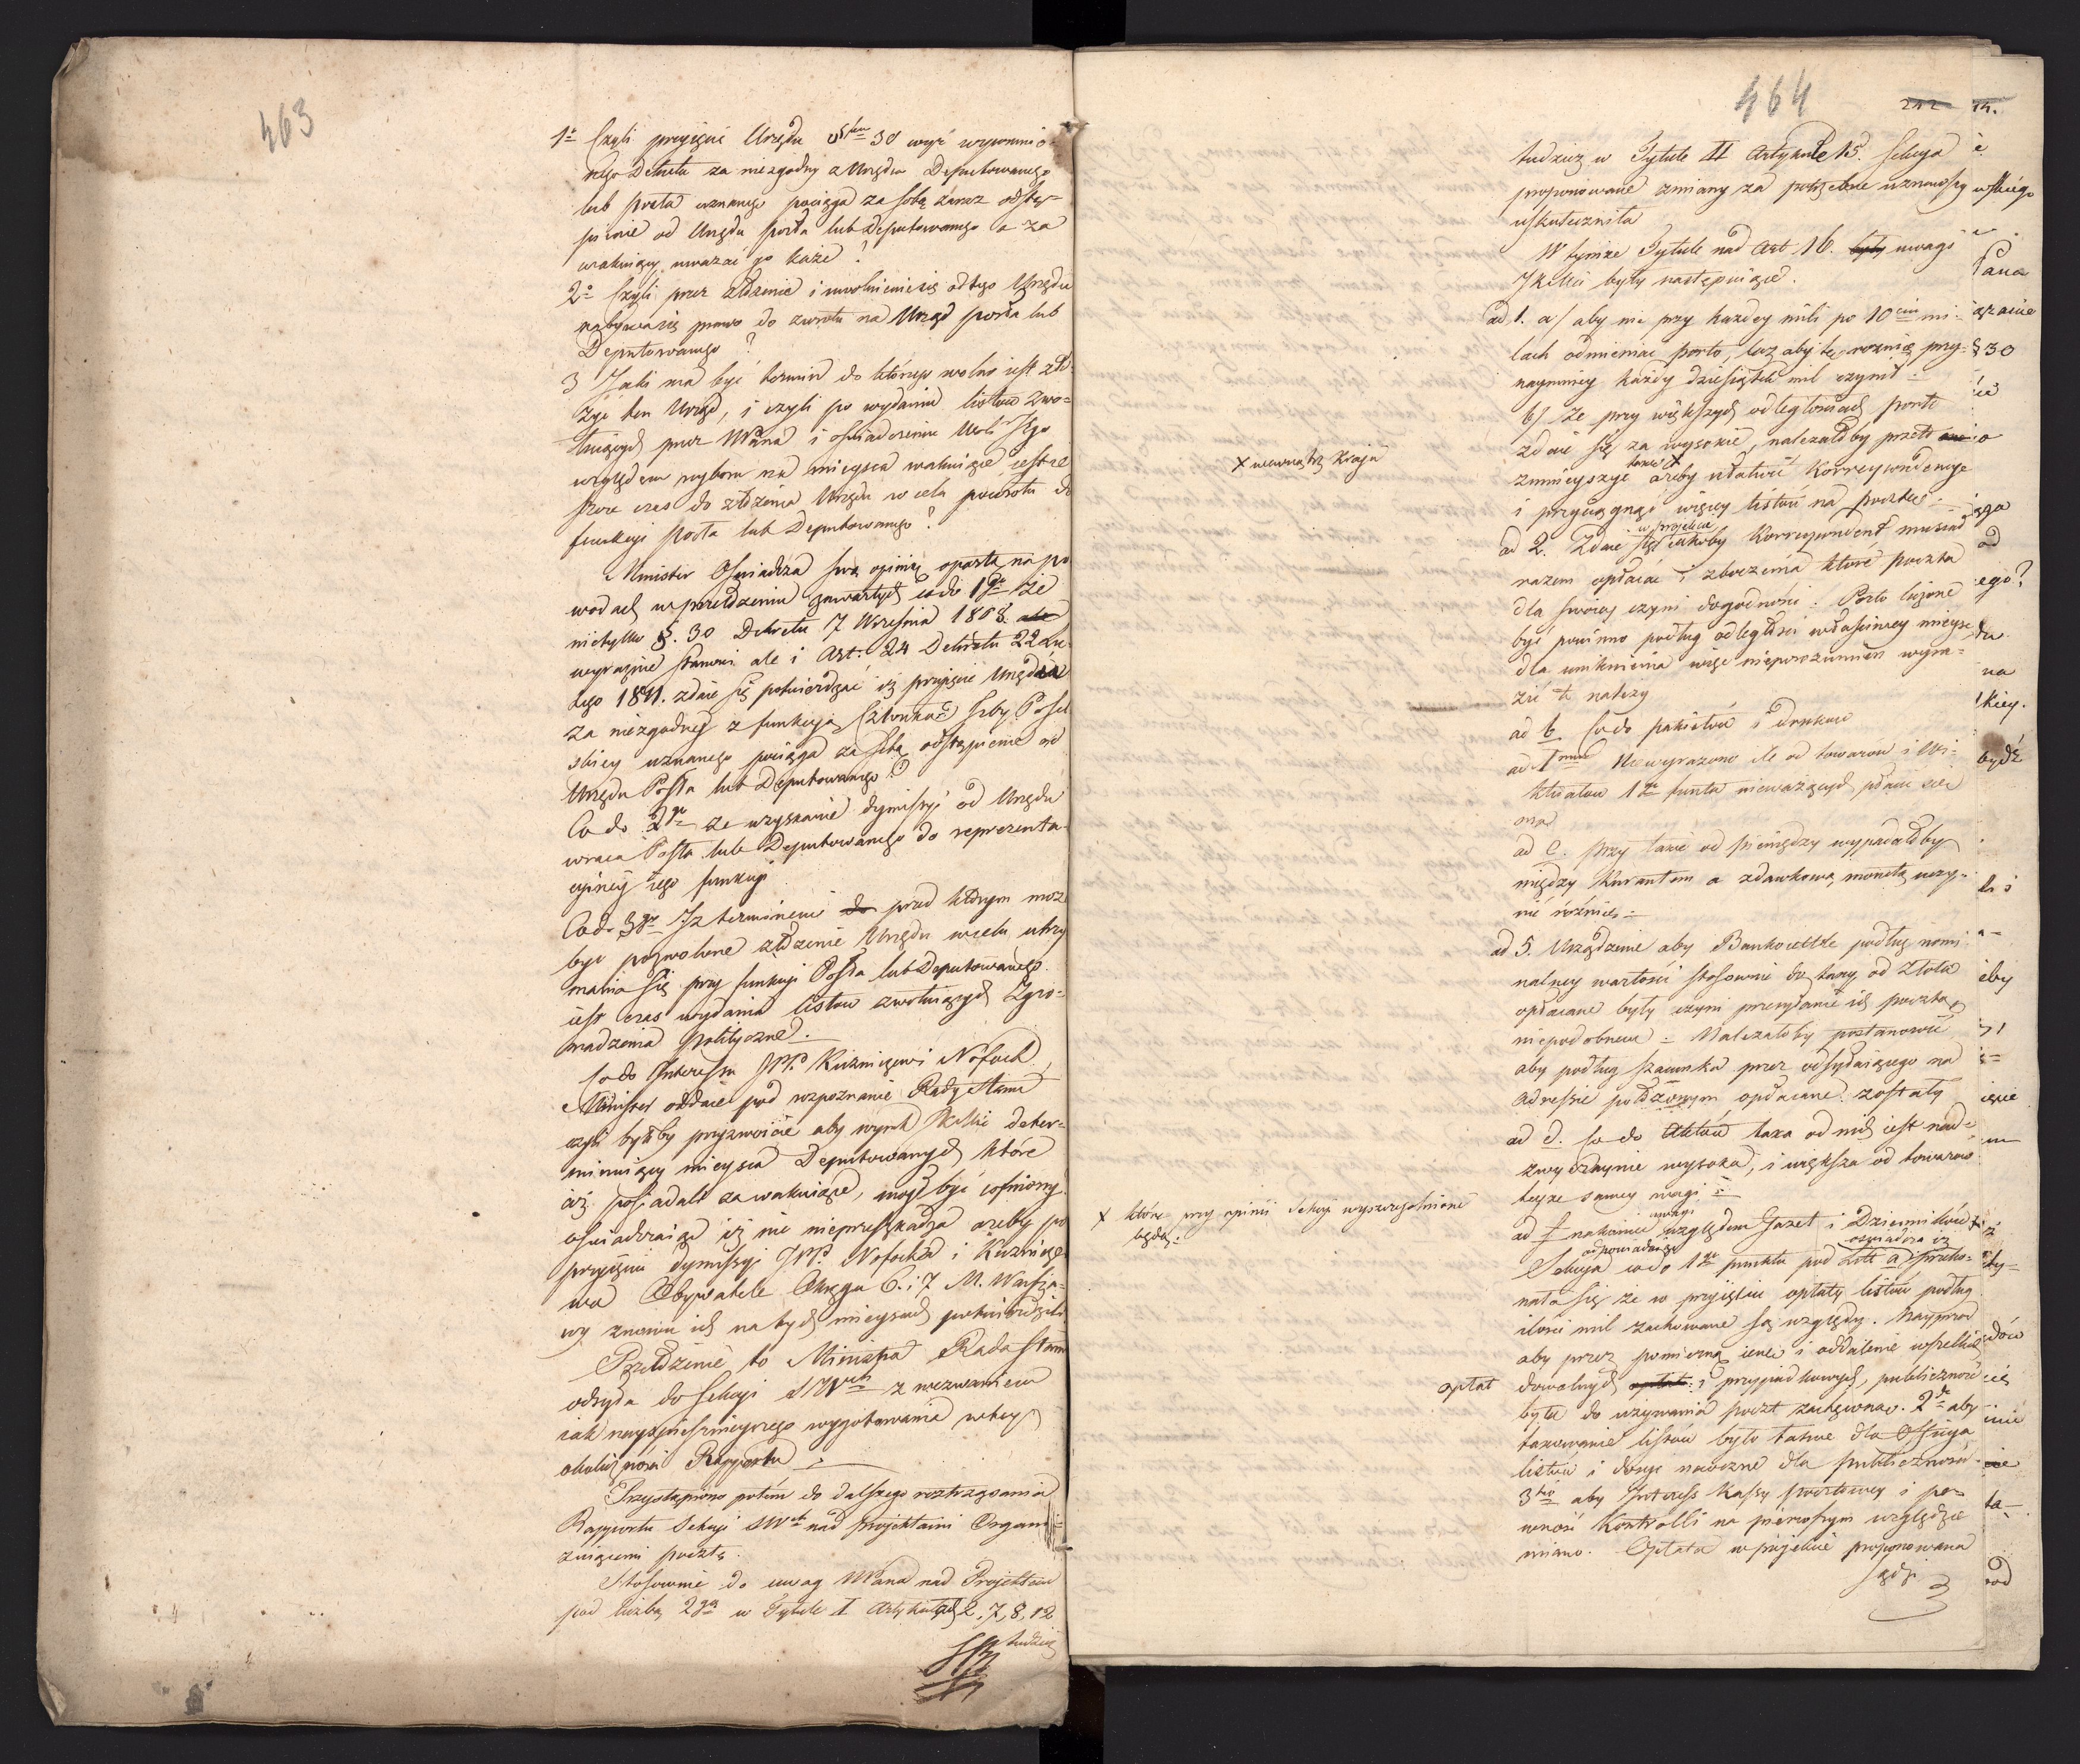 463
1o Czyli przyięcie Urzędu §fem 30 wyż wspomnio
nego Dekretu za niezgodny z Urzędem Deputowanego
lub posła uznanego pociąga za sobą zaraz odstą=
pienie od Urzędu posła lub Deputowanego a za
wakuiący uważać go każe?
2o Czyli przez złożenie i uwolnienie się od tego Urzędu
nabywa się prawo do zwrotu na Urząd posła lub
Deputowanego?
3 Jaki ma być termin do którego wolno iest zło
żyć ten Urząd, i czyli po wydaniu listów zwo=
łuiących przez WPana i oświadczeniu Woli Jego
względem wyboru na mieysca wakuiące iest ie
szcze czas do złożenia Urzędu w celu powrotu do
funkcyi posła lub Deputowanego?
Minister Oświadcza swą opinię opartą na po
wodach w przełożeniu zawartych co do 1go że
nietylko §. 30 Dekretu 7 Września 1808. ale
wyraźnie stanowi ale i Art: 24 Dekretu 22 Lu
tego 1811. zdaie się potwierdzać iż przyięcie Urzędu
za niezgodny z funkcyą Członka Izby Posel
skiey uznanego pociąga za sobą odstąpienie od
Urzędu Posła lub Deputowanego
Co do 2go że uzyskanie dymissyi od Urzędu
wraca Posła lub Deputowanego do reprezenta
cyiney iego funkcyi
Co do 3go Iż terminem do przed którym moż
być pozwolone złożenie Urzędu w celu utrzy
mania się przy funkcyi Posła lub Deputowanego
iest czas wydania listów zwołuiących Zgro=
madzenia polityczne.
Co do Interessu JPP. Kuźmicowi Nofock
Minister oddaie pod rozpoznanie Rady Stanu
czyli byłoby przyzwoicie aby wyrok JKMci deter=
minuiący mieysca Deputowanych które
ciż posiadali za wakuiące, mógł być cofniony
oświadczaiąc iż nic nieprzeszkadza ażeby po
przyięciu dymissyi JPP. Nofocka i Kuźmic
wa Obywatele Okręgu 6. i 7 M. Warsza=
wy znowu ich na tych mieyscach potwierdzili
Przełożenie to Ministra Rada Stanu
odsyła do Sekcyi SWch z wezwaniem
iak nayspieszniejszego wygotowania w tey
okoliczności Rapportu.
Przystąpiono potem do dalszego roztrząsania
Rapportu Sekcyi SWch nad projektami Organi=
zuiącemi pocztę.
Stosownie do uwag WPana nad Projektem
pod liczbą 2gą w Tytule I Artykułach 2, 7, 8, 12
tudzież
464
242
14.
tudzież w Tytule II Artykule 15. Sekcya
proponowane zmiany za potrzebne uznawszy
uskuteczniła
W tymże Tytule nad Art. 16. były uwagi
JKMci były następuiące.
ad 1. a/ aby nie przy każdey mili po 10ciu mi=
lach odmieniać porto, lecz aby tę roznicę przy=
naymniey każdy dziesiątek mil czynił.
b/ że przy większych odległościach porto
zdaie się za wysokie, należałoby przeto
zmnieyszyć takie X ażeby ułatwić Korrespondencye
i przyciągnąć więcey listów na pocztę.
X wewnątrz kraju
ad 2. Zdaie się w projekcie iakoby Korrespondent musiał
razem opłacać i zboczenia które poczta
dla swoiey czyni dogodności. Porto liczone
być powinno podług odległości właściwey mieysc
dla uniknienia więc nieporozumień wyra=
zić to należy
ad b. Co do pakietów i druków
ad 1mum Niewyrażono ile od towarów i Wi=
ktuałow 1go funta nieważących płacić się
ma
ad c. przy taxie od pieniędzy wypadałoby
między Kurantem a zdawkową monetą uczy=
nić różnicę =
ad 5. Urządzenie aby Bankocetle podług nomi
nalney wartości stosownie do taxy od złota
opłacane były czyni przesyłanie ich pocztą
niepodobnem = Należałoby postanowić
aby podług szacunku przez odsyłaiącego na
Adressie położonym opłacane zostały
ad d. Co do Aktów taxa od nich iest nad=
zwyczaynie wysoka, i większa od towarow
teyże samey wagi =
ad f nakoniec uwagi względem Gazet i Dzienników X
X które przy opinii Sekcyi wyszczególnione
będą.
Sekcya odpowiadaiąc co do 1go punktu pod Litt a oświadcza iż przeko=
nała się że w przyięciu opłaty listów podług
ilości mil zachowane są względy. Nayprzod
aby przez pomierną cenę i oddalenie wszelkich
dowolnych opłat i przypadkowych, publiczność
opłat
była do używania poczt zachęconą. 2do aby
taxowanie listów było łatwe dla Officya
listów i dosyć naoczne dla publiczności.
3tio aby Interess Kassy pocztowey i pe=
wność Kontrolli na pierwszym względzie
miano. Opłata w projekcie proponowana
sądzi